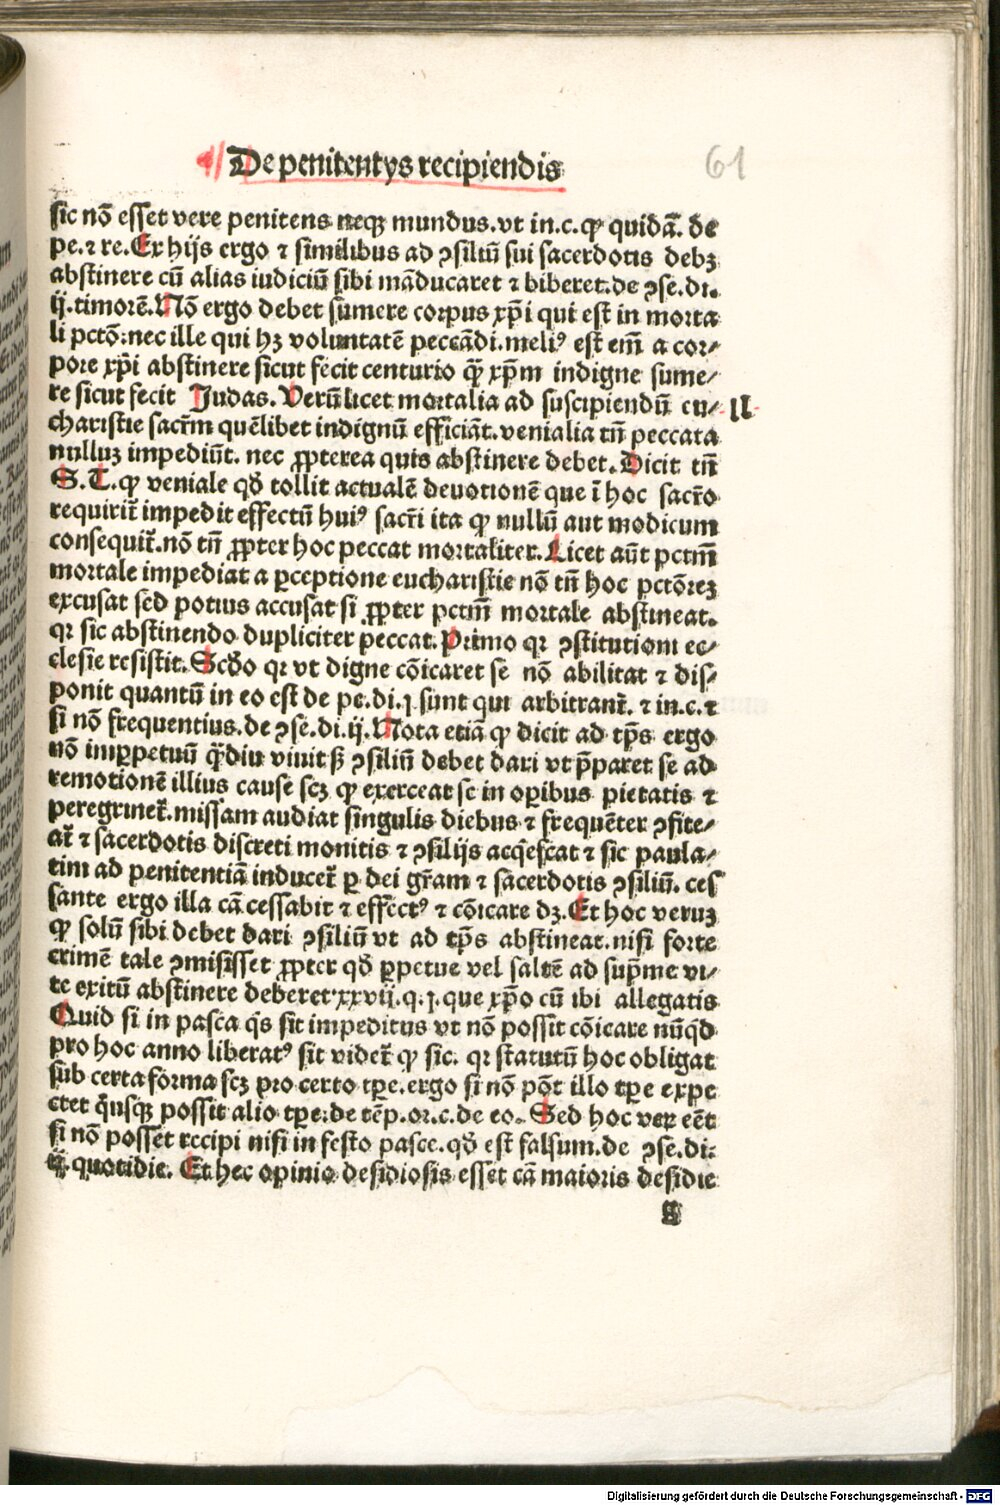 De penitentys recipiendis
61
sic nō esset vere penitens neqꝫ mundus.vt in.c.ꝙ quidā. de
pe.⁊ re.Ex hijs ergo ⁊ similibus ad ꝯsiliū sui sacerdotis debꝫ
abstinere cū alias iudiciū sibi māducaret ⁊ biberet.de ꝯse.di.
ij.timorē.Nō ergo debet sumere corpus xp̄i qui est in morta
li pctō:nec ille qui hꝫ voluntatē peccādi.meliꝰ est em̄ a cor⸗
pore xp̄i abstinere sicut fecit centurio q̄ꝫ xp̄m indigne sume⸗
re sicut fecit Judas. Verū licet mortalia ad suscipiendū eu⸗
II
charistie sacrm̄ quēlibet indignū efficiāt.venialia tn̄ peccata
nulluꝫ impediūt. nec ꝓpterea quis abstinere debet.Dicit tn̄
S.T.ꝙ veniale qđ tollit actualē deuotionē que ī hoc sacr̄o
requirit̄ impedit effectū huiꝰ sacr̄i ita ꝙ nullū aut modicum
consequit̄.nō tn̄ ꝓpter hoc peccat mortaliter.Licet aūt pctm̄
mortale impediat a ꝑceptione eucharistie nō tn̄ hoc pctōreꝫ
excusat sed potius accusat si ꝓpter pctm̄ mortale abstineat.
qr sic abstinendo dupliciter peccat.Primo qr ꝯstitutioni ec⸗
clesie resistit.Scđo qr vt digne cōicaret se nō abilitat ⁊ dis⸗
ponit quantū in eo est de pe.di.j sunt qui arbitrant̄. ⁊ in.c.⁊
si nō frequentius.de ꝯse.di.ij.Nota etiā ꝙ dicit ad tp̄s ergo
nō imꝑpetuū q̄ꝫdiu viuit sꝫ ꝯsiliū debet dari vt p̄paret se ad
remotionē illius cause scꝫ ꝙ exerceat se in oꝑibus pietatis ⁊
peregrinet̄.missam audiat singulis diebus ⁊ frequēter ꝯfite⸗
at̄ ⁊ sacerdotis discreti monitis ⁊ ꝯsilijs acq̄escat ⁊ sic paula⸗
tim ad penitentiā inducet̄ ꝑ dei gr̄am ⁊ sacerdotis ꝯsiliū. ces
sante ergo illa cā cessabit ⁊ effectꝰ ⁊ cōicare dꝫ.Et hoc veruꝫ
ꝙ solū sibi debet dari ꝯsiliū vt ad tp̄s abstineat.nisi forte
crimē tale ꝯmisisset ꝓpter qđ ꝑpetue vel saltē ad sup̄me vi⸗
te exitū abstinere deberet xxvij.q.j.que xp̄o cū ibi allegatis
Quid si in pasca q̄s sit impeditus vt nō possit cōicare nūqd̄
pro hoc anno liberatꝰ sit videt̄ ꝙ sic. qr statutū hoc obligat
sub certa forma scꝫ pro certo tp̄e.ergo si nō pōt illo tp̄e expe
ctet q̄usqꝫ possit alio tp̄e:de tēp.or.c.de eo. Sed hoc veꝝ eēt
si nō posset recipi nisi in festo pasce.qđ est falsum.de ꝯse.di:
ij.quotidie. Et hec opinio desidiosis esset cā maioris desidie
Digitalisierung gefördert durch die Deutsche Forschungsgemeinschaft - DFG